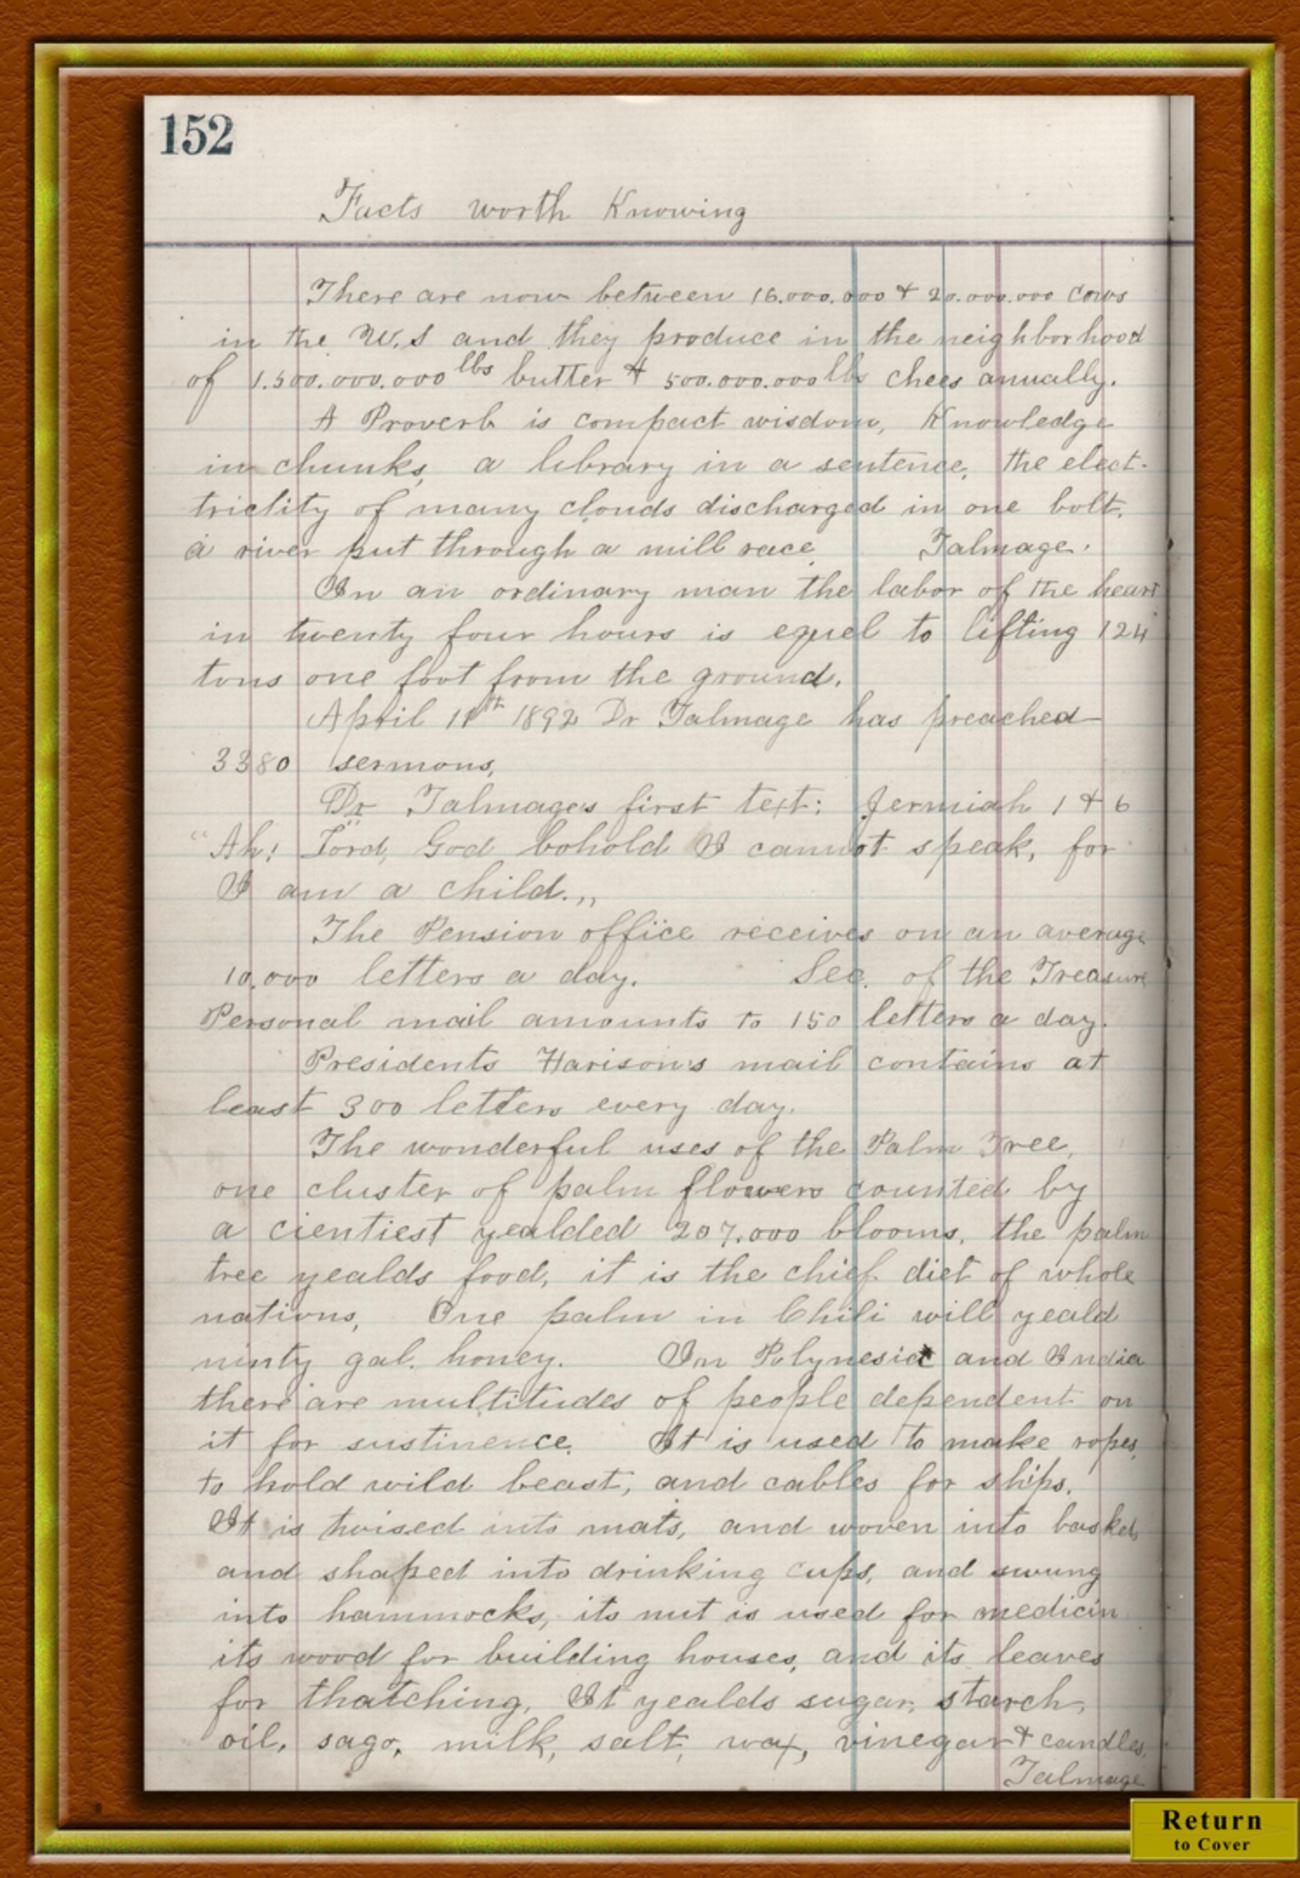 152
Facts worth Knowing
There are now between 16.000.000 & 20.000.000 cows
in the U.S and they produce in the neighborhood
of 1.500.000.000 lbs butter & 500.000.000 lbs chees anually.
A Proverb is compact wisdom, Knowledge
in chunks, a library in a sentence, the elect-
triclity of many clouds discharged in one bolt,
a river put through a mill race Talmage.
In an ordinary man the labor of the heart
in twenty four hours is equel to lifting 124
tons one foot from the ground.
April 11th 1892 Dr Talmage has preached
3380 sermons,
Dr Talmages first text: Jermiah 1 & 6
"Ah! Lord, God bohold I cannot speak, for
I am a child.,,
The Pension office receives on an average
10.000 letters a day. Sec. of the Treasure
Personal mail amounts to 150 letters a day.
Presidents Harison's mail contains at
least 300 letters every day.
The wonderful uses of the Palm Tree,
one cluster of palm flowers counted by
a cientiest yealded 207.000 blooms, the palm
tree yealds food, it is the chief diet of whole
nations, One palm in Chili will yeald
ninty gal. honey. In Polynesia and India
there are multitudes of people dependent on
it for sustinence. It is used to make ropes,
to hold wild beast, and cables for ships.
It is twised into mats, and woven into baskets
and shaped into drinking cups, and swung
into hammocks, its nut is used for medicin
its wood for building houses, and its leaves
for thatching, It yealds sugar, starch,
oil, sago, milk, salt, wax, vinegar & candles,
Talmage
Return
to Cover